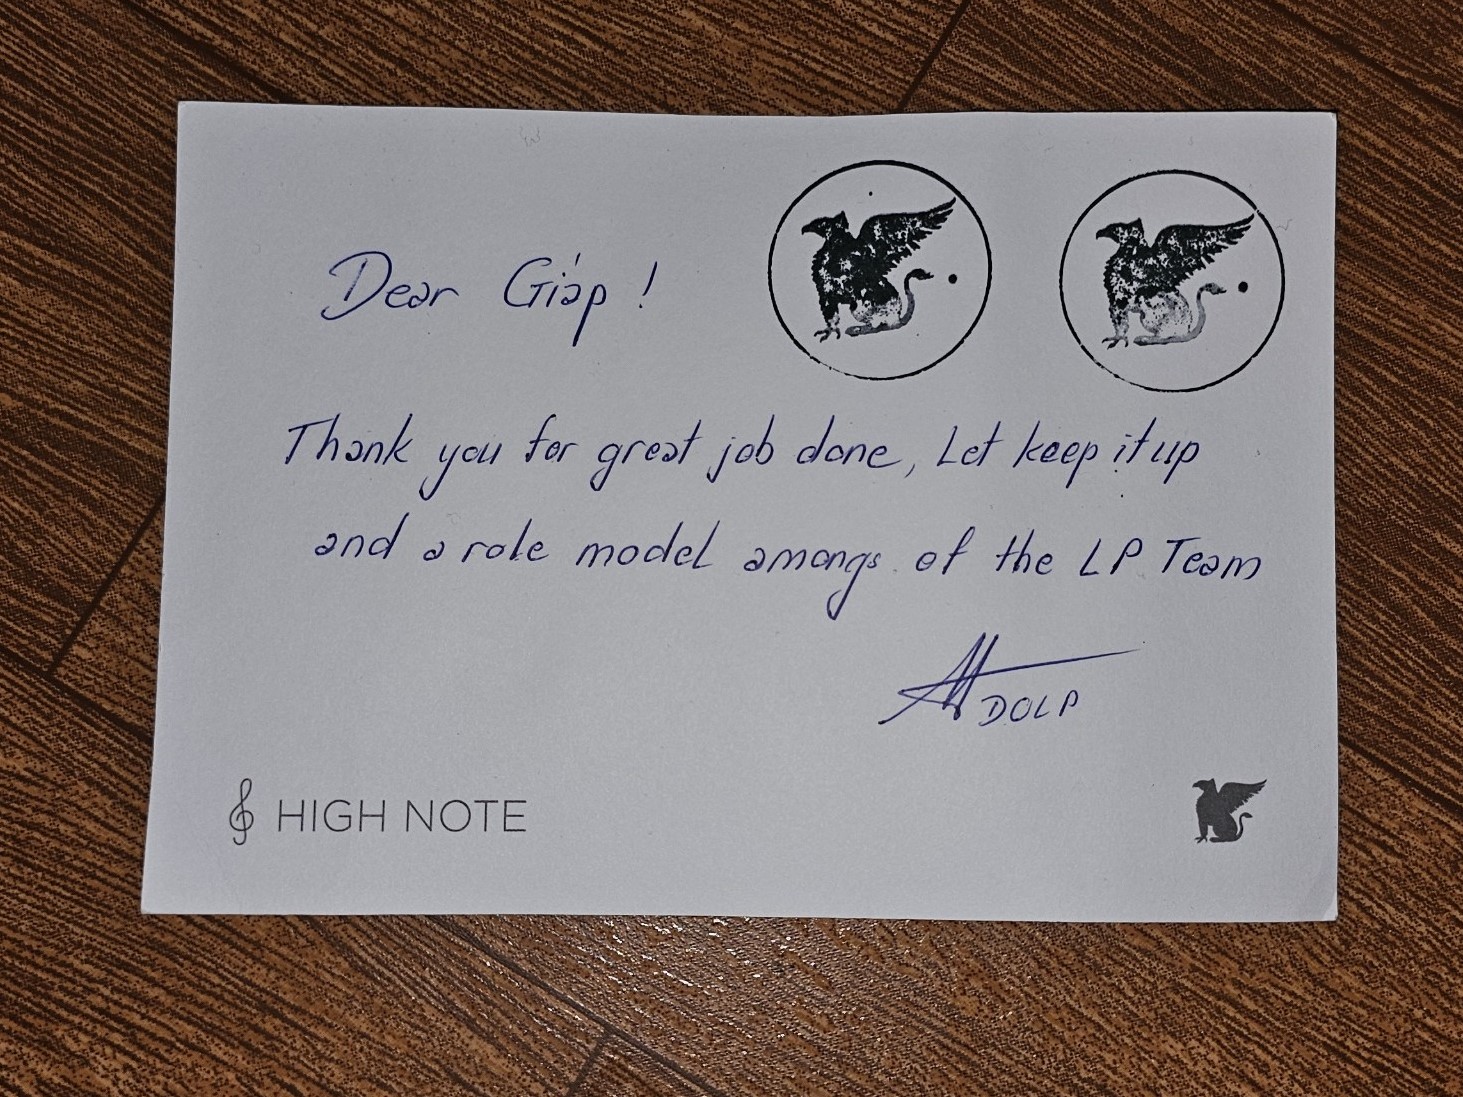 Dear Giáp !
Thank you for great job done, Let keep it up
and a role model amongs of the LP Team
DOLP
HIGH NOTE